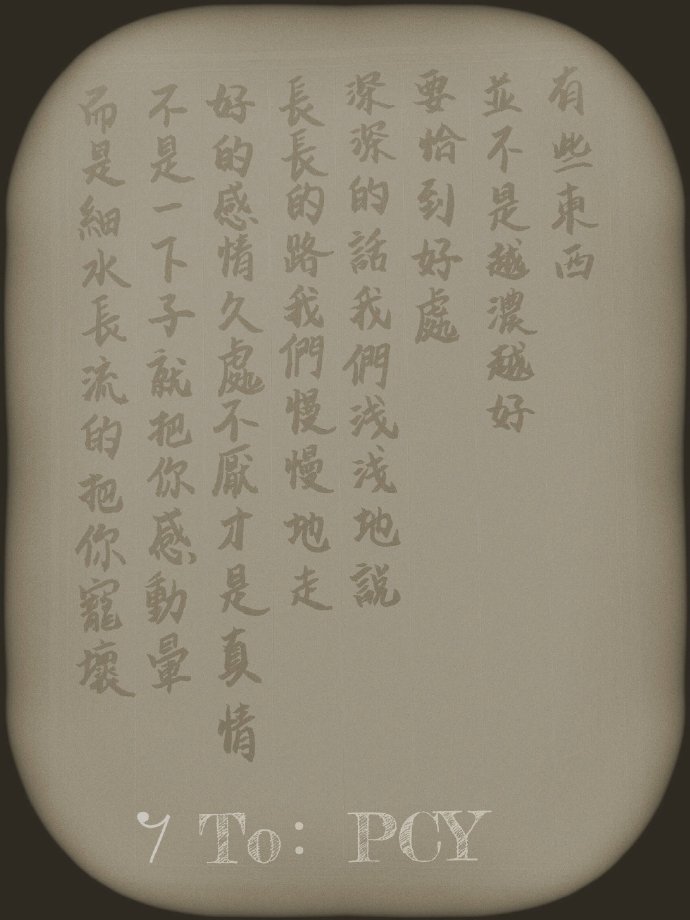 有些東西
並不是越濃越好
要恰到好處
深深的話我們浅浅地説
長長的路我們慢慢地走
好的感情久處不厭才是真情
不是一下子就把你感動暈
而是細水長流的把你寵壞
To: PCY